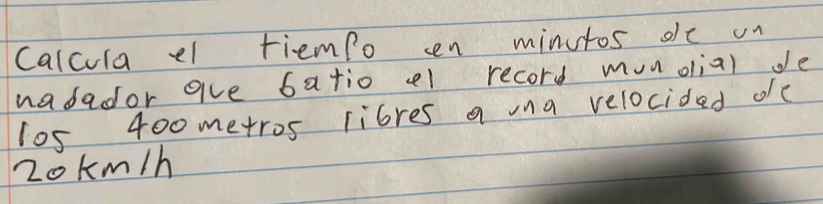 Calcula el tiempo en minutos de un
nadador que batio el record mundial de
los 400 metros libres a una velocidad de
20 km/h